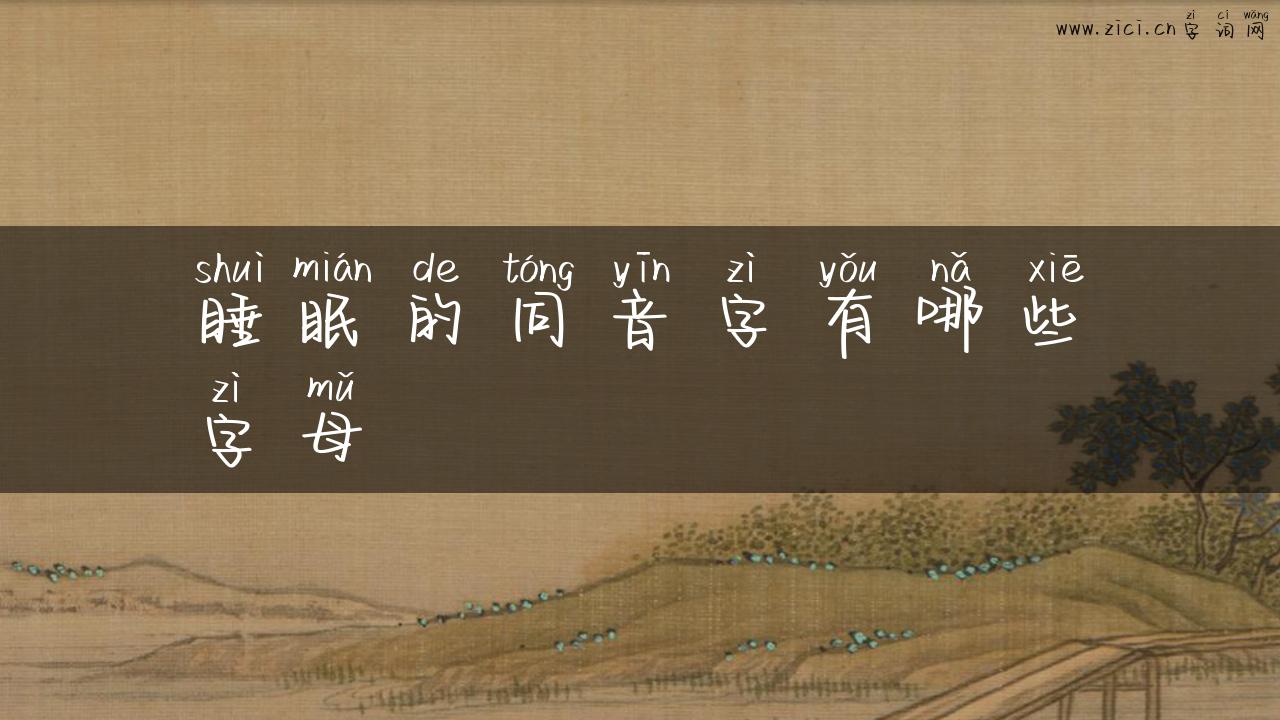 zì cí wǎng
www.zici.cn 字词网
shuì mián de tóng yīn zì yǒu nǎ xiē
睡眠的同音字有哪些
zì mǔ
字母